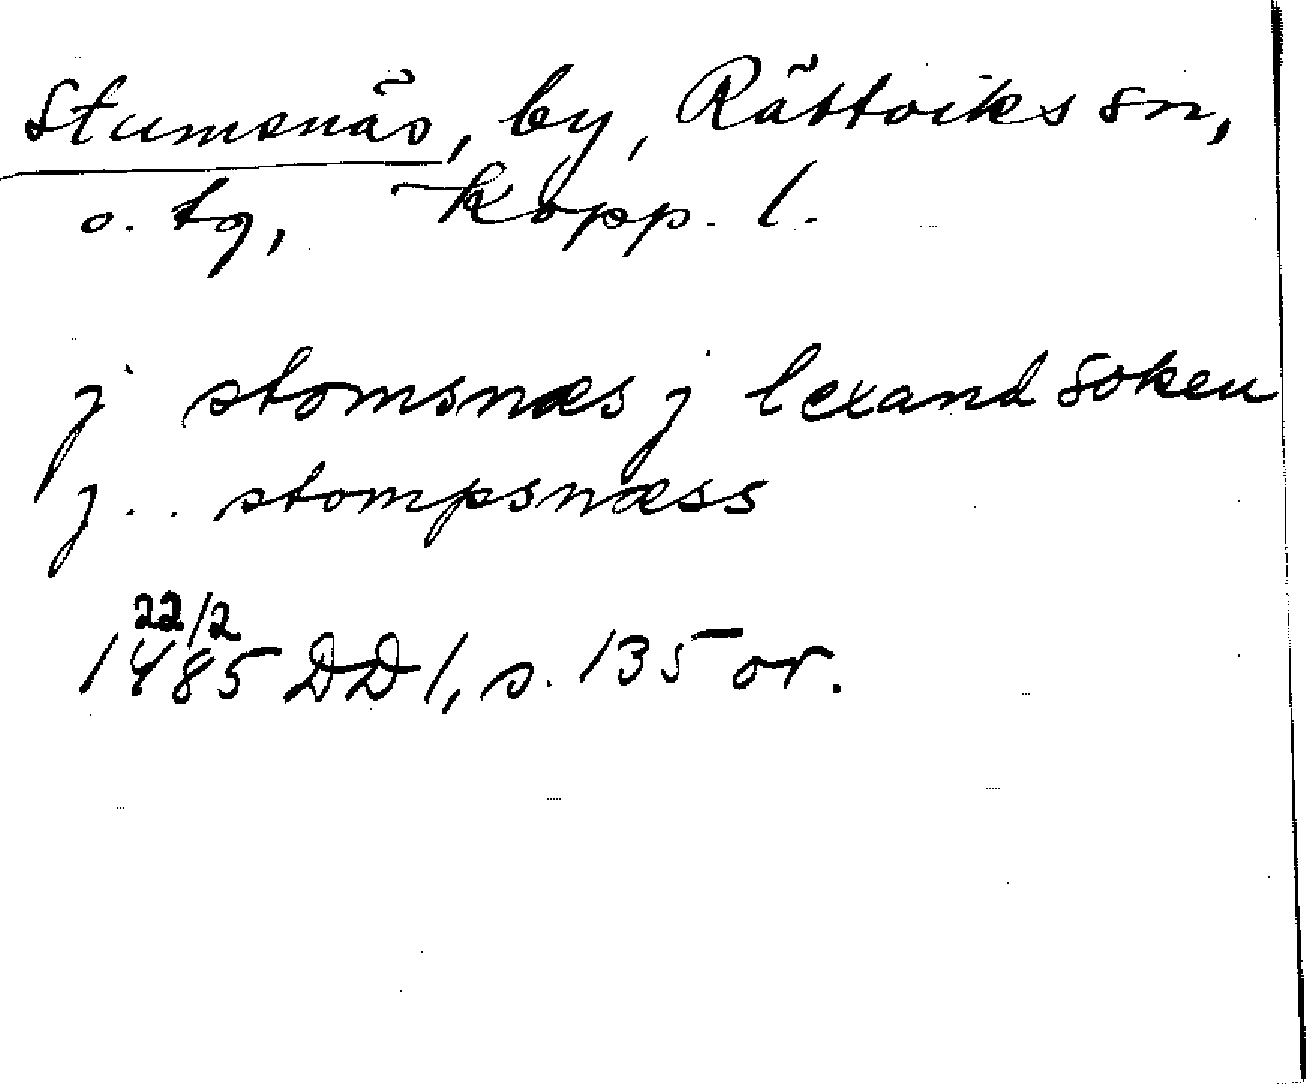 Stumsnäs, by, Rättviks sn,
o. tg, Kopp. l.
j stomsnæs j lexand soken
j .. stompsnæss
22/2
1485 DD 1, s. 135 or.